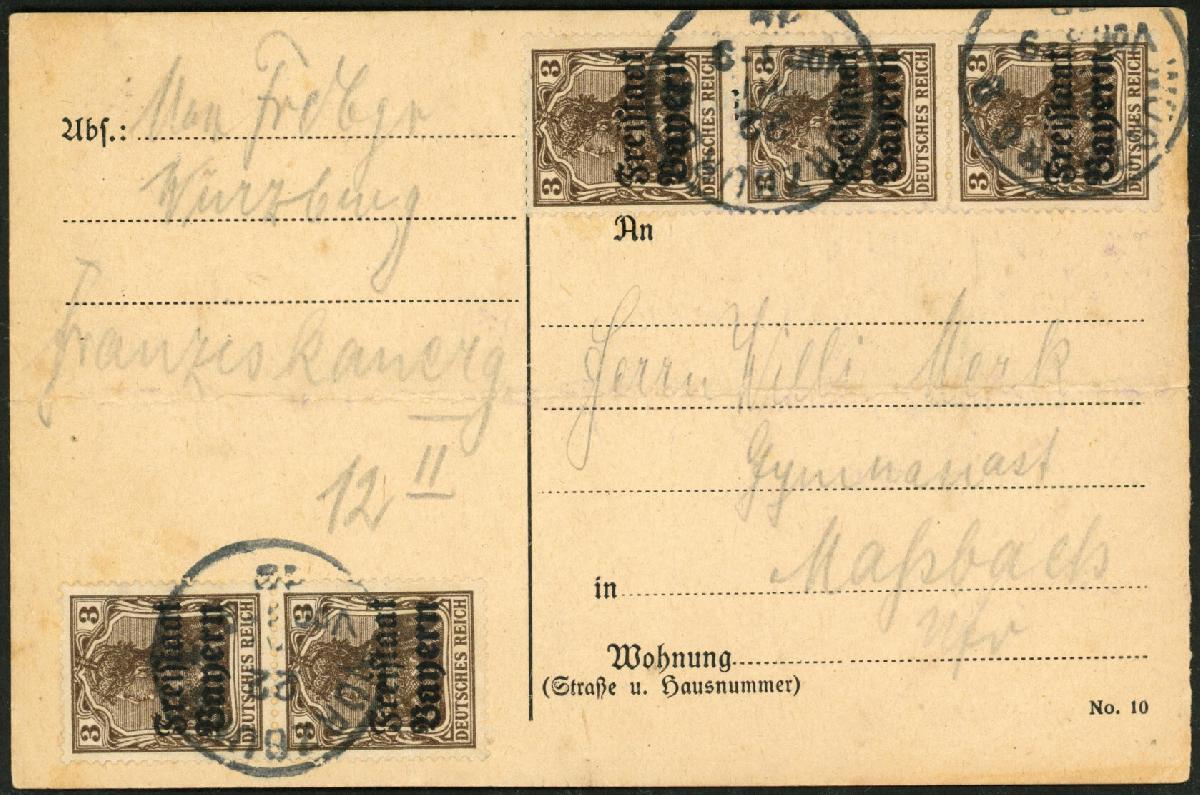 Abs.:
Würzburg
Franziskanerg
12 II
3 3 DEUTSCHES REICH
Freistaat
Bayern
3 3 DEUTSCHES REICH
Freistaat
Bayern
3 3 DEUTSCHES REICH
Freistaat
Bayern
An
Herrn Willi Merk
Gymnasiast
in Maßbach
Ufr
Wohnung
(Straße u. Hausnummer)
No. 10
3 3 DEUTSCHES REICH
Freistaat
Bayern
3 3 DEUTSCHES REICH
Freistaat
Bayern